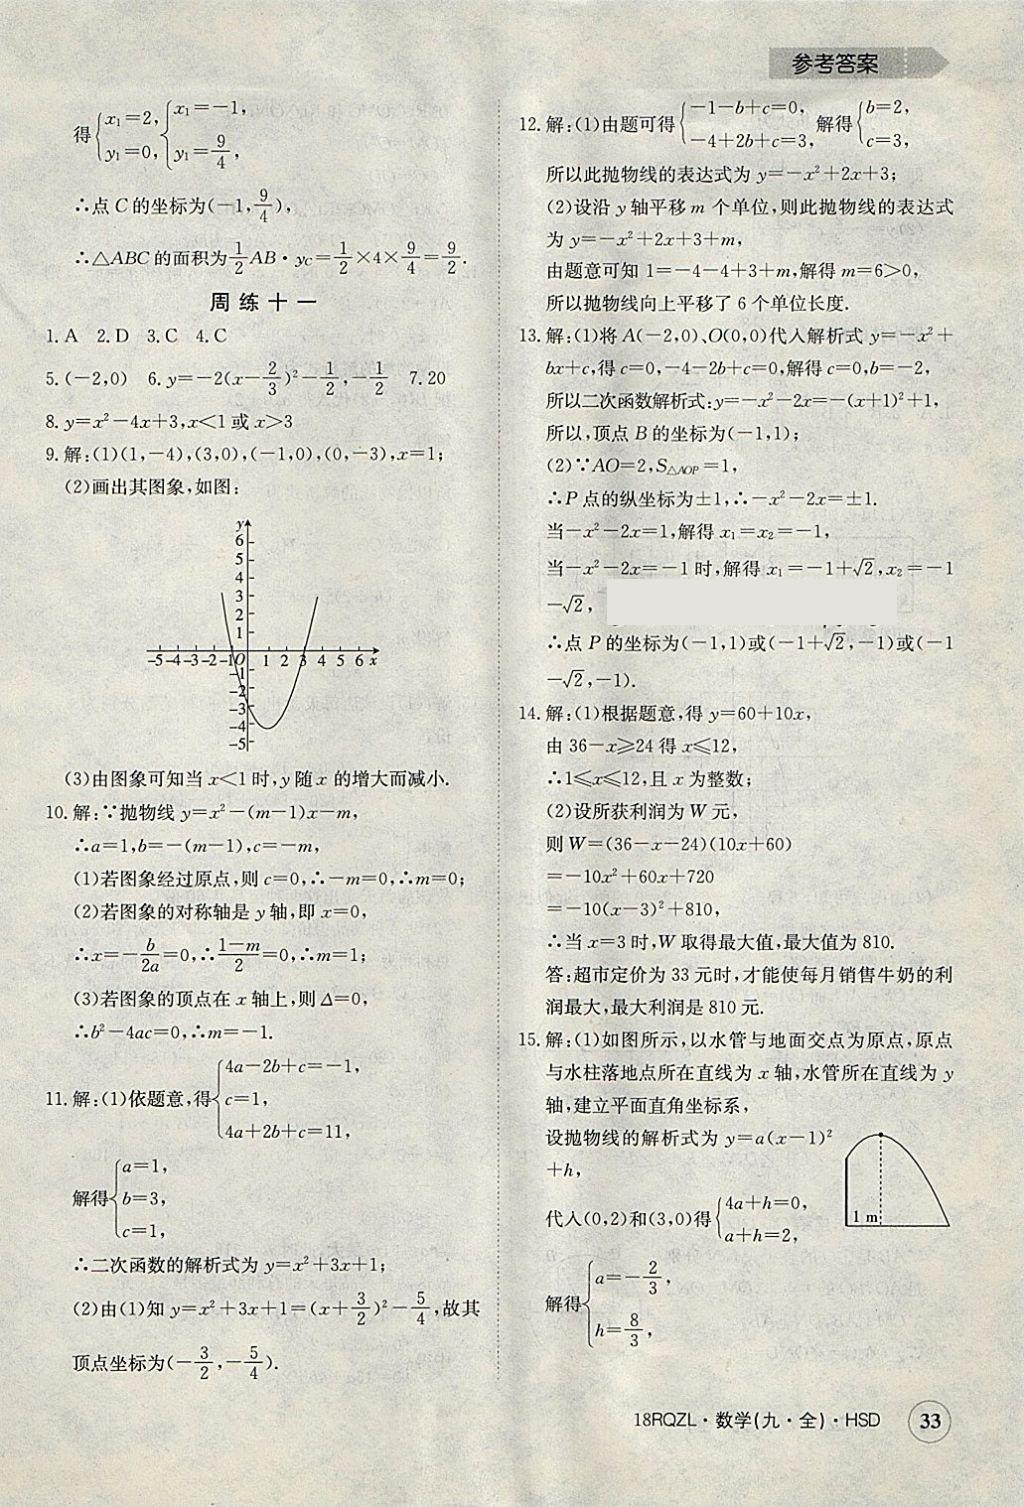 参考答案
得{x₁=2, y₁=0, {x₁=-1, y₁=9/4,
∴点C的坐标为(-1,9/4),
∴△ABC的面积为1/2AB·y_C=1/2×4×9/4=9/2.
周练十一
1.A 2.D 3.C 4.C
5.(-2,0) 6.y=-2(x-2/3)²-1/2,-1/2 7.20
8.y=x²-4x+3,x<1或x>3
9.解:(1)(1,-4),(3,0),(-1,0),(0,-3),x=1;
(2)画出其图象,如图:
y
6
5
4
3
2
1
-5-4-3-2-1O 1 2 3 4 5 6 x
-1
-2
-3
-4
-5
(3)由图象可知当x<1时,y随x的增大而减小.
10.解:∵抛物线y=x²-(m-1)x-m,
∴a=1,b=-(m-1),c=-m,
(1)若图象经过原点,则c=0,∴-m=0,∴m=0;
(2)若图象的对称轴是y轴,即x=0,
∴x=-b/2a=0,∴1-m/2=0,∴m=1;
(3)若图象的顶点在x轴上,则Δ=0,
∴b²-4ac=0,∴m=-1.
11.解:(1)依题意,得{4a-2b+c=-1, c=1, 4a+2b+c=11,
解得{a=1, b=3, c=1,
∴二次函数的解析式为y=x²+3x+1;
(2)由(1)知y=x²+3x+1=(x+3/2)²-5/4,故其
顶点坐标为(-3/2,-5/4).
12.解:(1)由题可得{-1-b+c=0, -4+2b+c=3, 解得{b=2, c=3,
所以此抛物线的表达式为y=-x²+2x+3;
(2)设沿y轴平移m个单位,则此抛物线的表达式
为y=-x²+2x+3+m,
由题意可知1=-4-4+3+m,解得m=6>0,
所以抛物线向上平移了6个单位长度.
13.解:(1)将A(-2,0)、O(0,0)代入解析式y=-x²+
bx+c,得c=0,-4-2b+c=0,解得c=0,b=-2,
所以二次函数解析式:y=-x²-2x=-(x+1)²+1,
所以,顶点B的坐标为(-1,1);
(2)∵AO=2,S△AOP=1,
∴P点的纵坐标为±1,∴-x²-2x=±1.
当-x²-2x=1,解得x₁=x₂=-1,
当-x²-2x=-1时,解得x₁=-1+√2,x₂=-1
-√2,
∴点P的坐标为(-1,1)或(-1+√2,-1)或(-1
-√2,-1).
14.解:(1)根据题意,得y=60+10x,
由36-x≥24得x≤12,
∴1≤x≤12,且x为整数;
(2)设所获利润为W元,
则W=(36-x-24)(10x+60)
=-10x²+60x+720
=-10(x-3)²+810,
∴当x=3时,W取得最大值,最大值为810.
答:超市定价为33元时,才能使每月销售牛奶的利
润最大,最大利润是810元.
15.解:(1)如图所示,以水管与地面交点为原点,原点
与水柱落地点所在直线为x轴,水管所在直线为y
轴,建立平面直角坐标系,
设抛物线的解析式为y=a(x-1)²
+h,
代入(0,2)和(3,0)得{4a+h=0, a+h=2,
1 m
解得{a=-2/3, h=8/3,
18RQZL·数学(九·全)·HSD 33